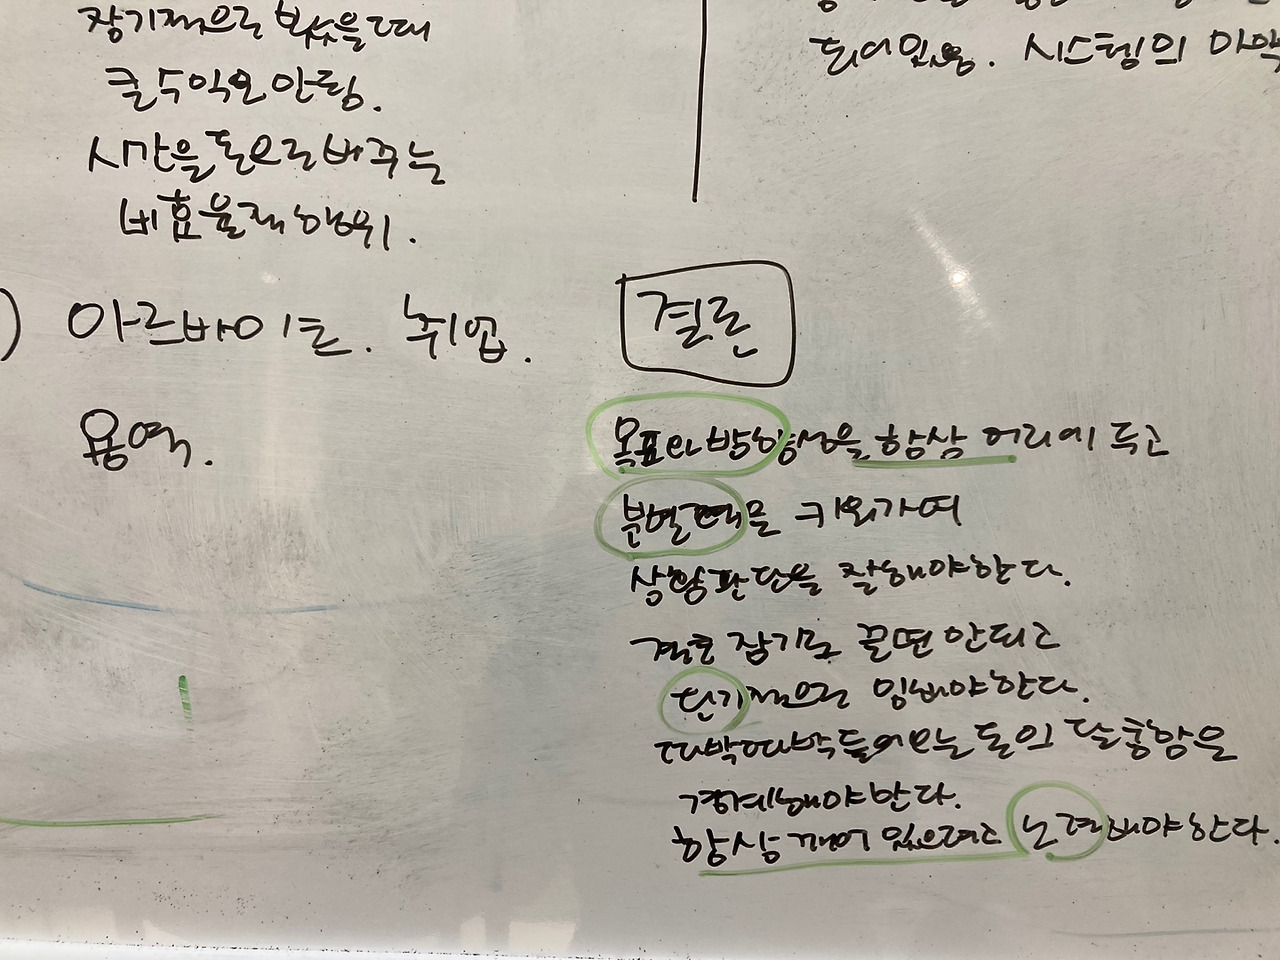 장기적으로 봤을때
큰 수익은 안됨.
시간을 돈으로 바꾸는
비효율적 행위.
) 아르바이트. 취업.
용역.
되어있음. 시스템의
결론
목표의 방향성을 항상 머리에 두고
분별력을 키워가며
상황판단을 잘해야한다.
결코 장기로 끌면 안되고
단기적으로 임해야한다.
따박따박 들어오는 돈의 달콤함을
경계해야 한다.
항상 깨어 있으려고 노력해야한다.